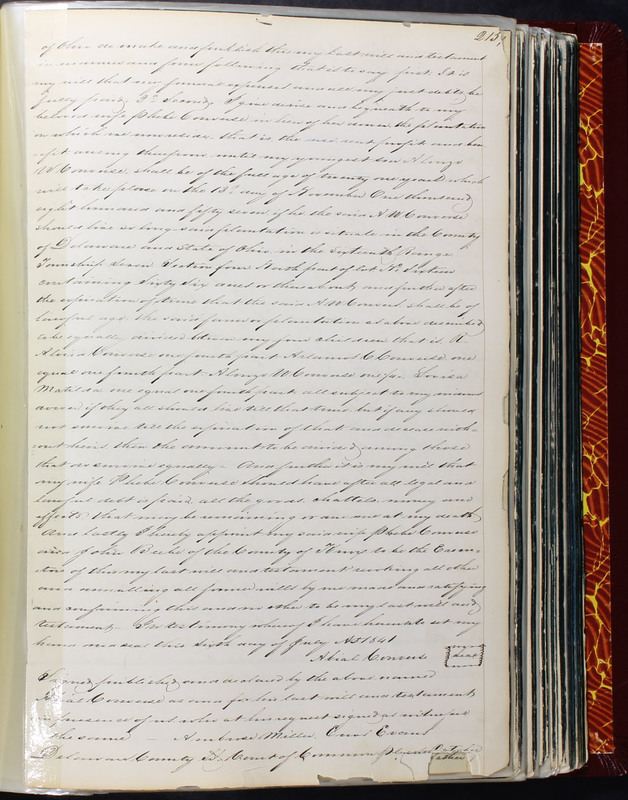 215
of Ohio do make and publish this my last will and testament
in manner and form following that is to say first. It is
my will that my funeral expenses and all my just debts be
fully paid, Second, I give devise and bequeath to my
beloved wife Phebe Converse in lieu of her dower the plantation
on which we now reside that is the
untill my youngest son Alonzo
W Converse shall be of the full age of twenty one years which
will take place on the 13th day of November One thousand
eight hundred and fifty seven if he the said A W Converse
should live so long. Said plantation is situate in the County
of Delaware and State of Ohio in the Sixteenth Range
Township Seven Section four North part of Lot No Sixteen
containing Sixty Six acres of their about, and further after
the expiration of time that the said A W Converse shall be of
lawful age the said farm or plantation as above described
to be equally divided between my four children that is A
Converse one fourth part C Converse one
equal one fourth part Alonzo W Converse one for Lovisa
Matilda one equal one fourth part all subject to my
if they all should live till that time but if any should
not survive till the expiration of that and decease with
out heirs then the amount to be divided among those
that do survive equally - And further it is my will that
my wife Phebe Converse should have after all legal and
lawful debt is paid all the goods chattels money and
effects that may be remaining or on at my death
And lastly I hereby appoint my said wife Phebe Converse
and John of the County of to be the Execu-
tors of this my last will and testament revoking all other
and annulling all former wills by me made and ratifying
and confirming this and no other to be my last will and
testament - In testimony whereof I have hereunto set my
hand and seal this sixth day of July AD 1841
Abial Converse seal
Signed published and declared by the above named
Abial Converse as and for his last will and testament
in presence of us who at his request signed as witnesses
the same - Ambrose Miller, Evans
Delaware County Court of Common Pleas